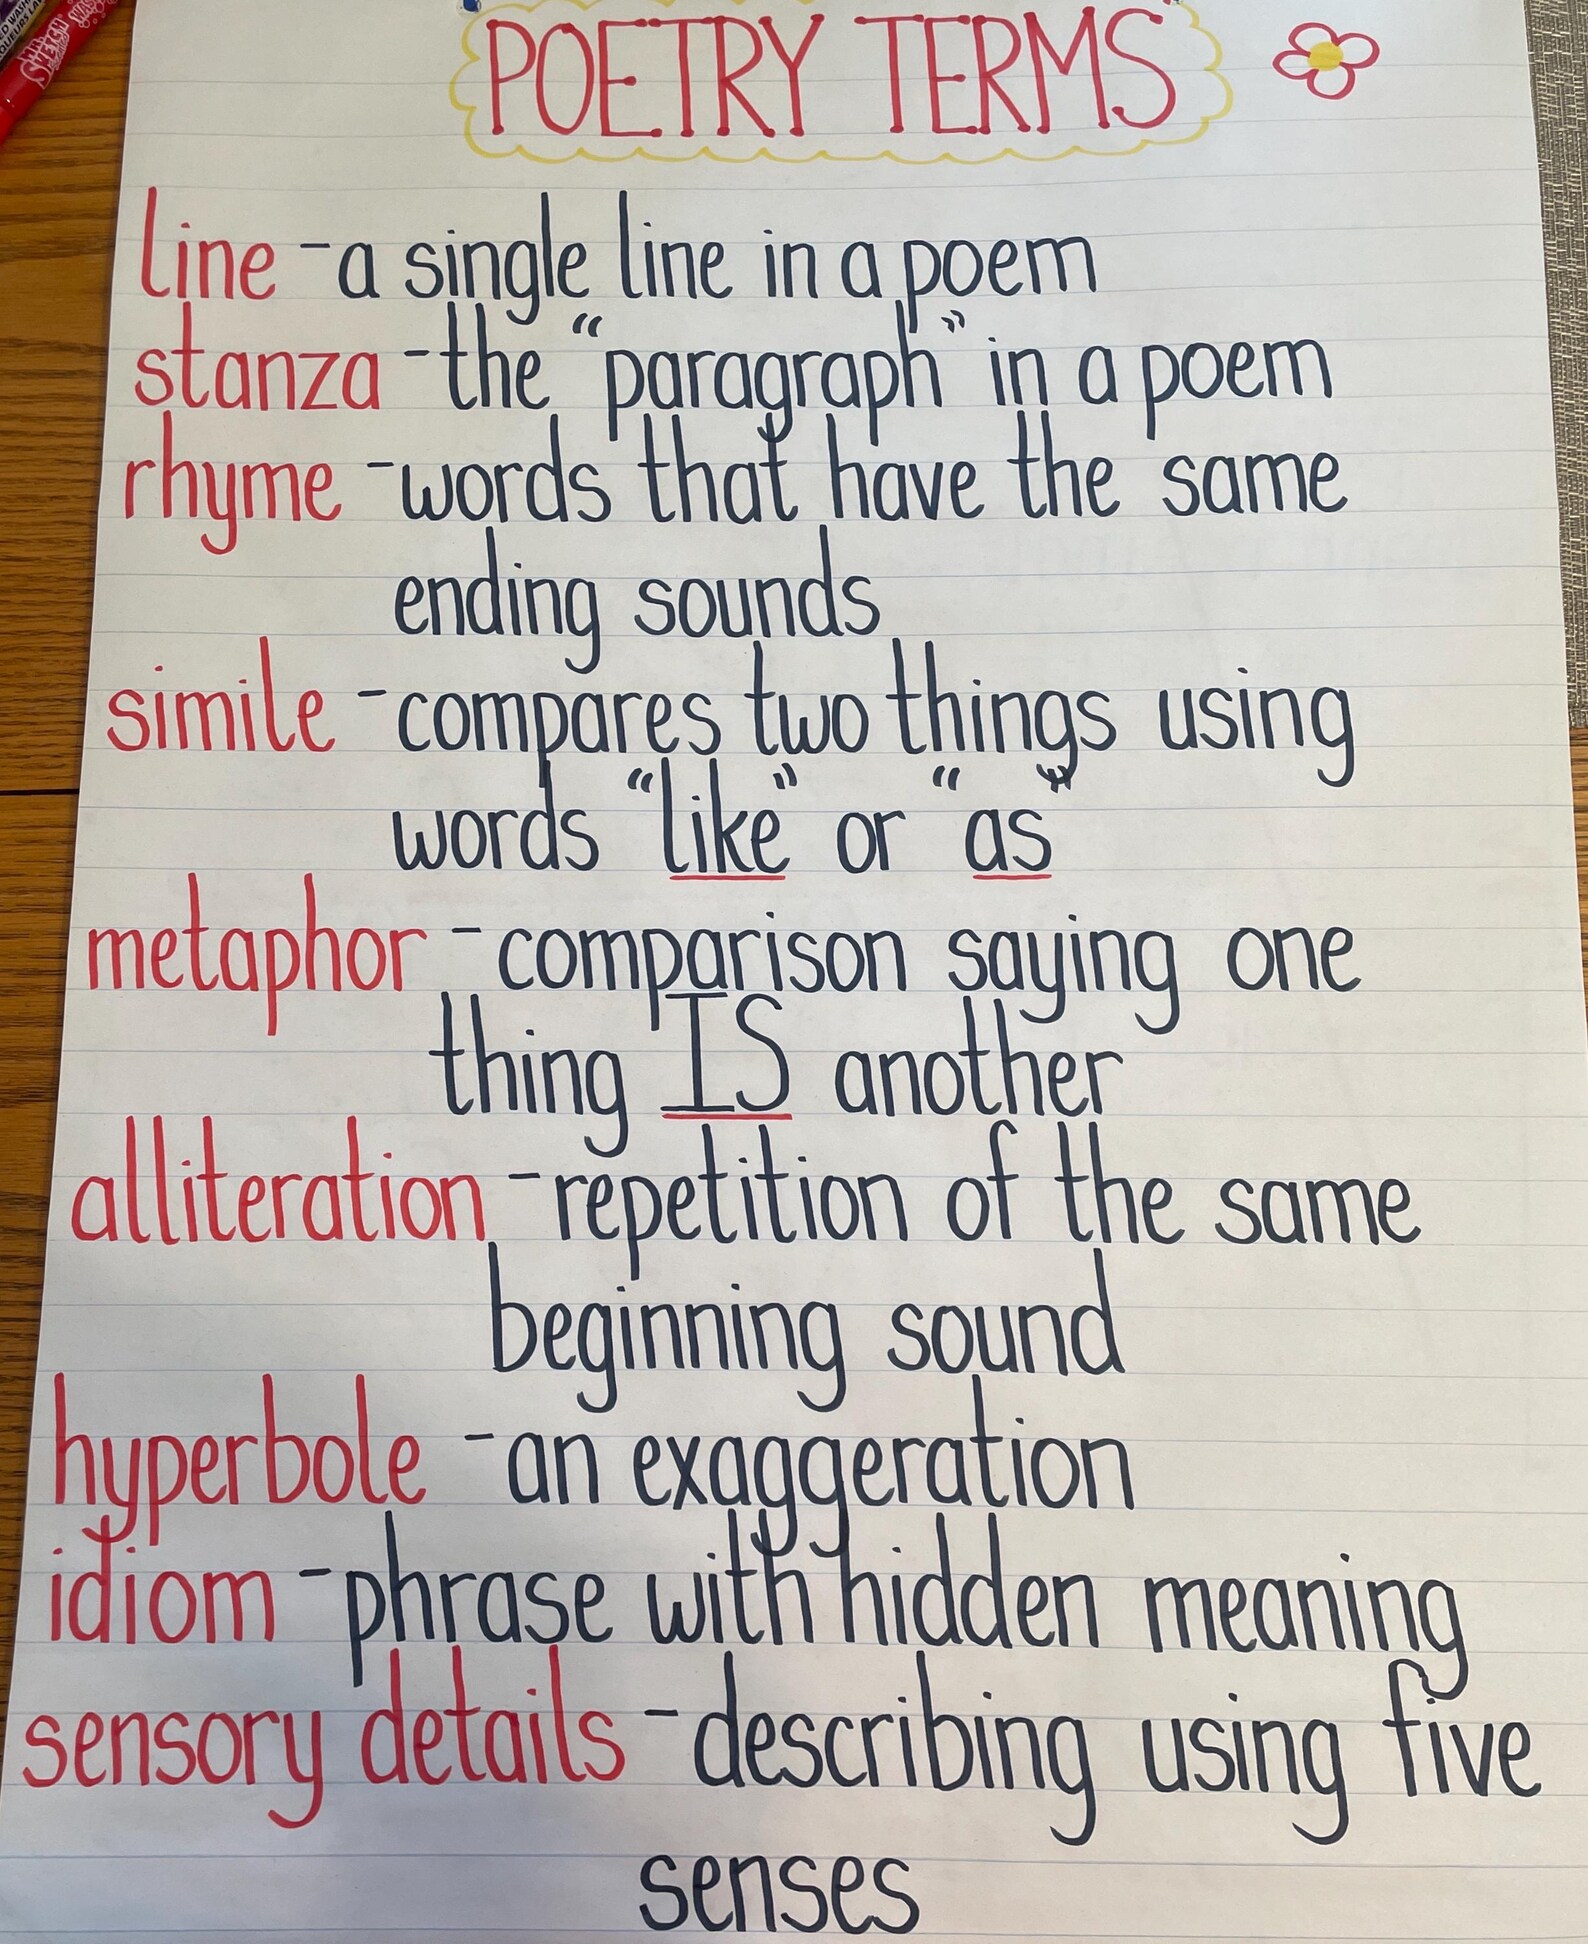 POETRY TERMS
line - a single line in a poem
stanza - the "paragraph" in a poem
rhyme - words that have the same
ending sounds
simile - compares two things using
words "like" or "as"
metaphor - comparison saying one
thing IS another
alliteration - repetition of the same
beginning sound
hyperbole - an exaggeration
idiom - phrase with hidden meaning
sensory details - describing using five
senses